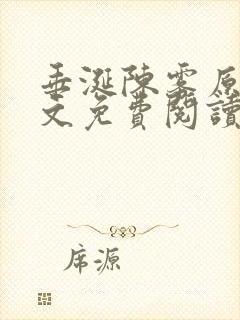 垂涎陳霧原
文免費閱讀
席源